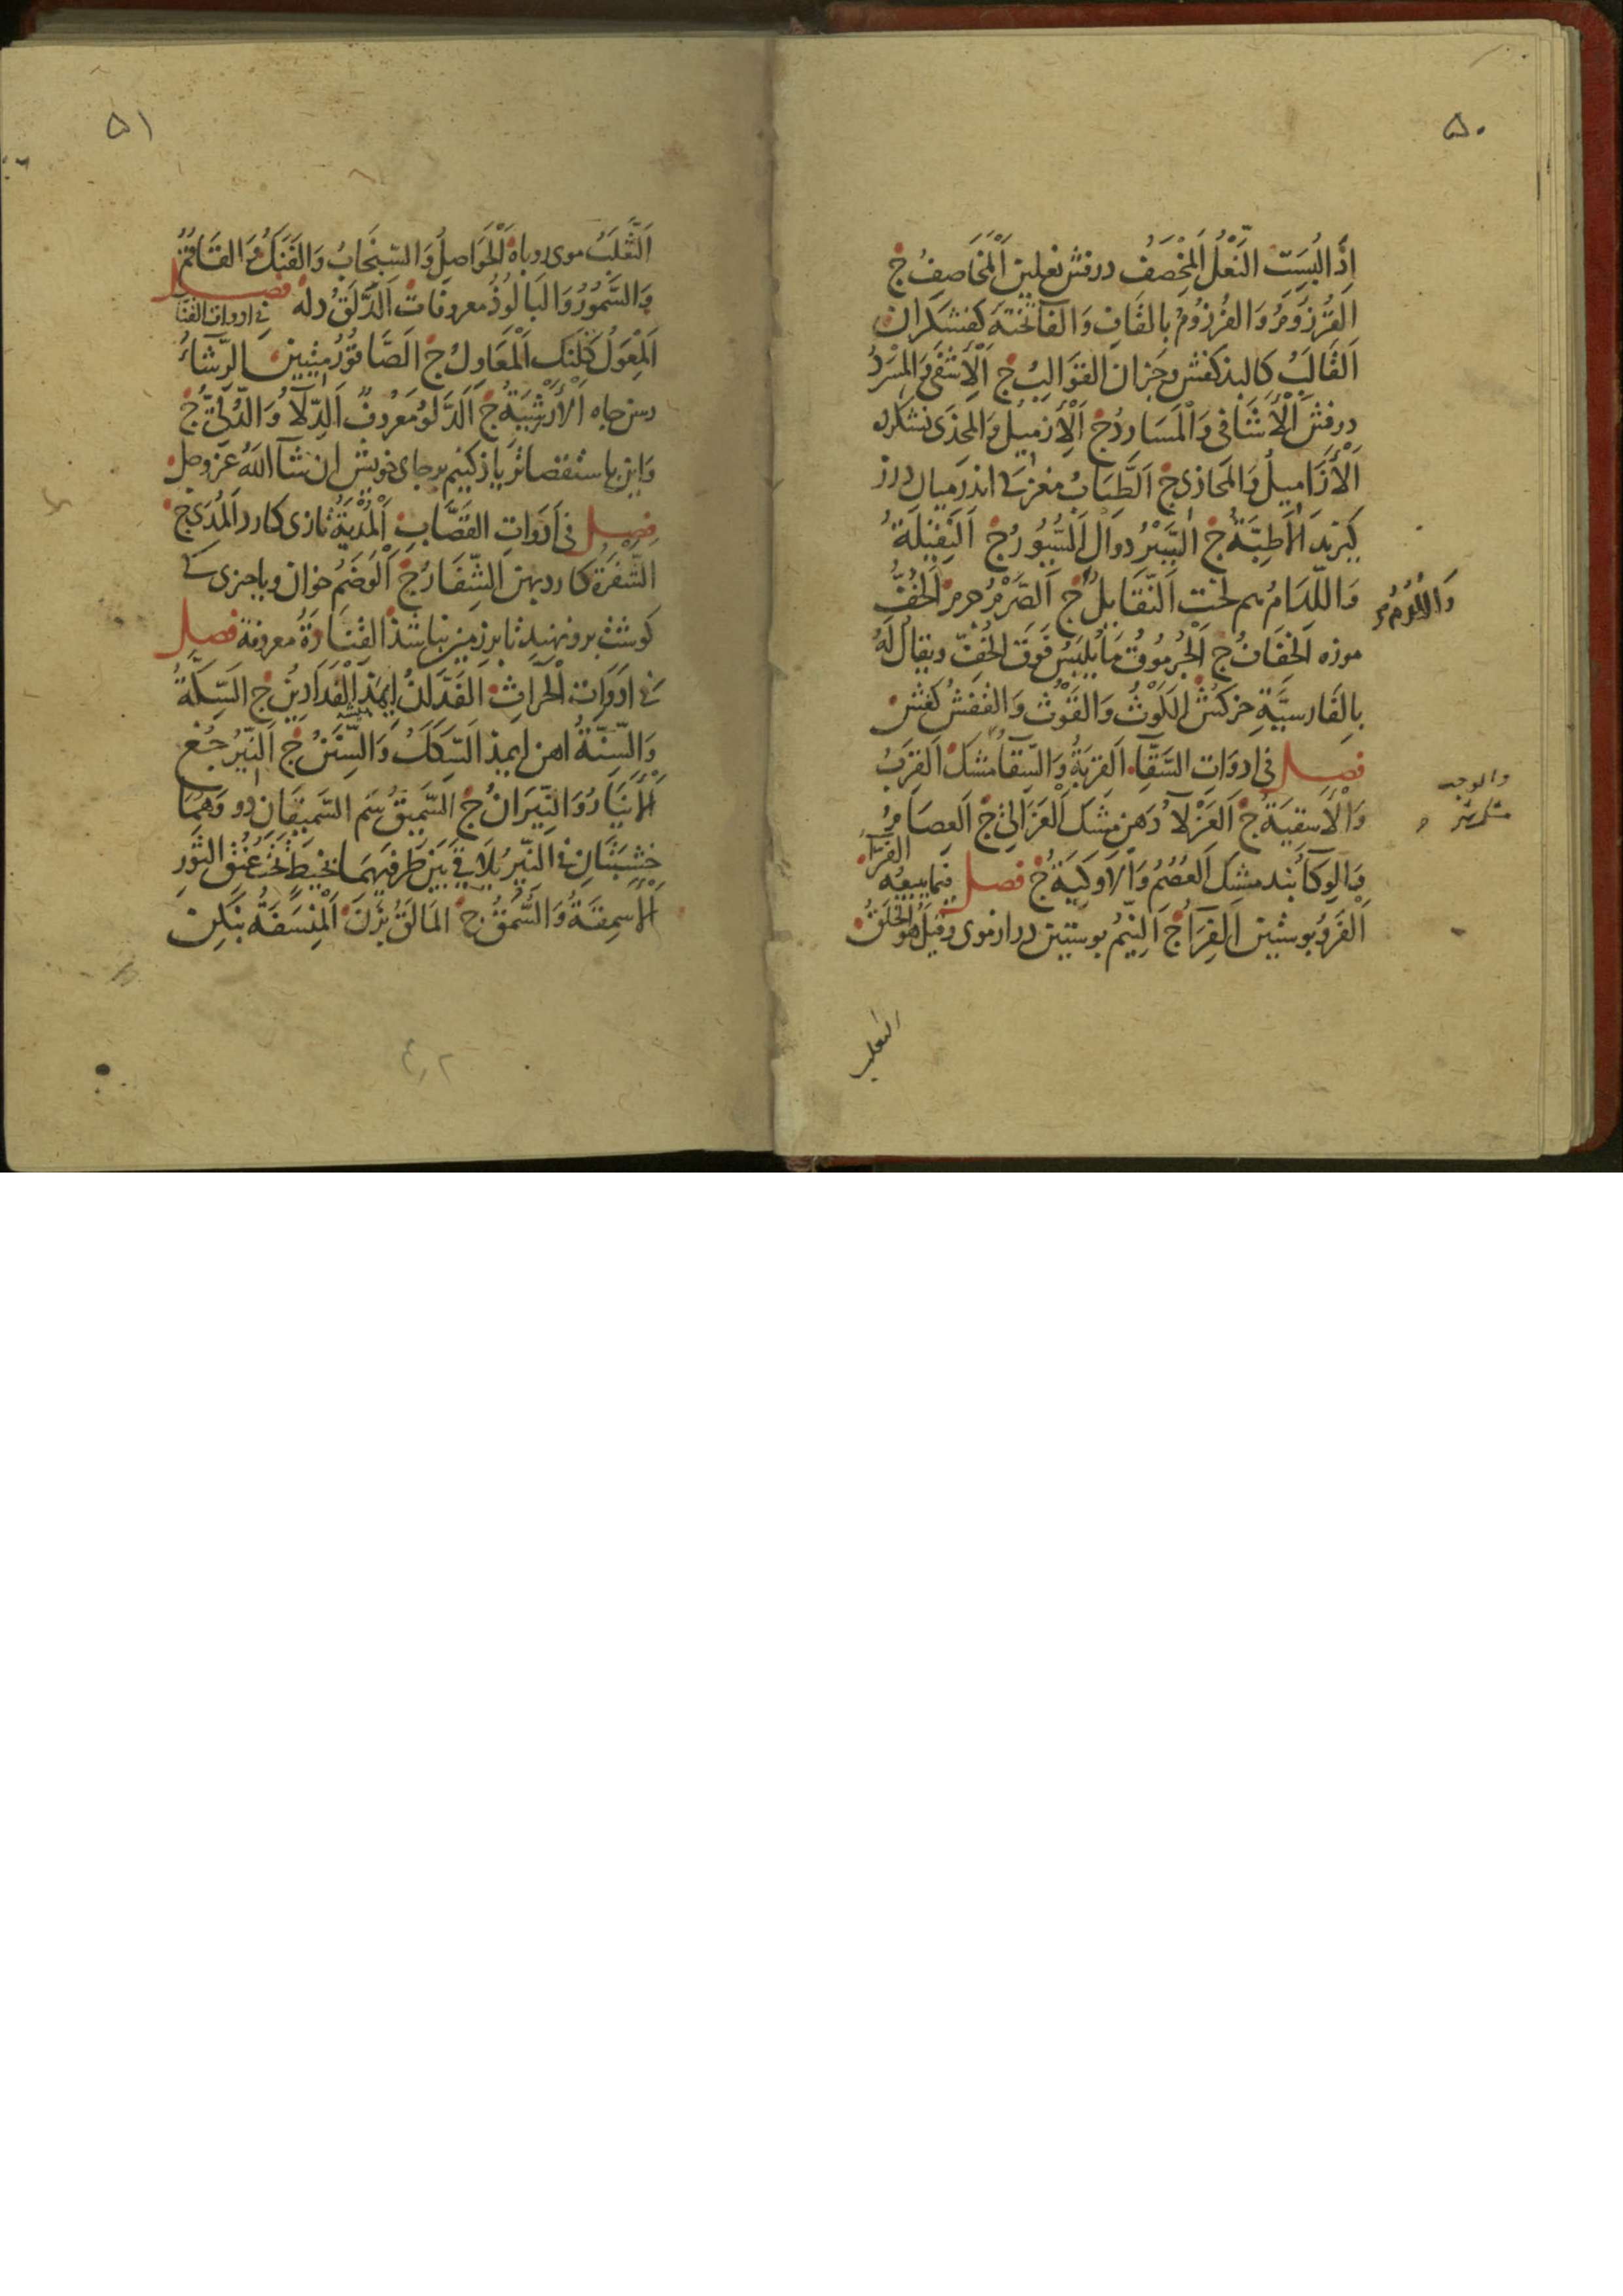 ۵۰
اِذَا لُبِسَتِ النَّعْلُ اَلْمِخْصَفُ درفش نعلین اَلْمَخَاصِفُ ج
اَلْقُرْزُومُ وَالفُرْزُومُ بالفَافِ وَالفاتحته كفشكران
اَلقَالَبُ كالبذ كفش وجزان القَوَالِبُ ج اَلْاِشْفَى وَالْمِسْرَدُ
درفش اَلْاَشَافى وَالْمَسَارِدُ ج اَلْاِزْمِيلُ وَالْمِحْذَى نشكرده
اَلْاَزَامِيلُ وَالْمَحَاذِى ج اَلطِّبَابُ مغزى اندر ميان درز
كيرند اَلْاَطِبَّةُ ج اَلسَّيْرُ دوال اَلسُّيُورُ ج اَلنَّقِيلَةُ
وَاللِّدَامُ هم لخت اَلنَّقَايِلُ ج اَلصَّرْمُ جرم اَلْخُفُّ
وَاللُّدُمُ
موزه اَلْخِفَافُ ج اَلْجُرْمُوقُ مَا يُلْبَسُ فَوقَ الْخُفِّ ويقال لَهُ
بِالفَارسيَّةِ خركش اَلكَوْثُ وَالقَوْثُ وَالْقَفْشُ كفش
فصل فى ادوَاتِ السَّقَّاءِ اَلقِرْبَةُ وَالسِّقَاءُ مشك اَلقِرَبُ
وَالْاَسقِيَةُ ج اَلعَزْلَاءُ دَهن مشك اَلْعَزَالِى ج اَلعِصَامُ
وَالوِكَاءُ بند مشك اَلعُصُمُ وَالاَوكِيَةُ ج فصل فيما يبيعه الفرّاء
اَلْفَرْوُ بوستين اَلْفِرَاءُ ج اَلنِّيمُ بوستين دراز موى وقيل هو الخَلَقُ
الثعلب
۵۱
اَلثَّعْلَبُ موى روباه اَلْحَوَاصِلُ وَالسِّنْجَابُ وَالفَنَكُ وَالقَاقُمُ
وَالسَّمُّورُ وَالبَالُوذُ معروفات اَلدَّلَقُ دله فصل فى ادوات القنّاء
اَلْمِعْوَلُ كلنك اَلْمَعَاوِلُ ج اَلصَّاقُورُ ميتين اَلرِّشَاءُ
رسن چاه اَلْاَرْشِيَةُ ج اَلدَّلوُ مَعْرُوفٌ اَلدِّلَاءُ وَالدُّلِىُّ ج
وَاين باستقصاتر ياذ كنيم برجاى خويش ان شآ اللهُ عزّ وجل
فصل فى اَدَوَاتِ القَصَّابِ اَلْمُدْيَةُ تازى كارد اَلْمُدَى ج
اَلشَّفْرَةُ كارد بهن اَلشِّفَارُ ج اَلْوَضَمُ خوان ويا جزى كى
كوشت برو نهند تا بر زمين نباشذ القَنَارَةُ معروفة فصل
فى ادَوَات الْحَرَّاثِ اَلفَدَّانُ ايمذ اَلْفَدَادِينُ ج اَلسِّكَّةُ
وَالسِّنَّةُ اهن ايمذ اَلسِّكَكُ وَالسِّنَنُ ج اَلنِّيرُ جُغ
اَلْاَنْيَارُ وَالنِّيرَانُ ج اَلسَّمِيقُ سم السَّمِيقَانِ دو وَهُمَا
خشبتَانِ فى النِّير يُلَاقى بَيْنَ طَرفيهِمَا بخيط تحت عنق الثَّورِ
اَلْاَسمِقَةُ وَالسُّمُقُ ج اَلمَالَقُ بَزَن اَلْمِنْسَفَةُ بنكن